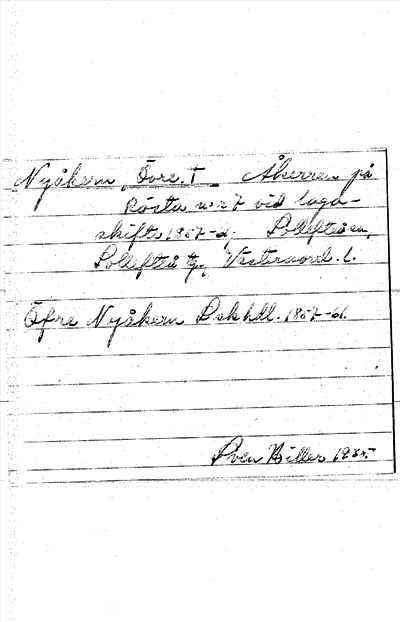 Nyåkern, Övre. † Åkerren på
Rösta n:r 7 vid laga
skifts 1857-
Sollefteå sn,
Sollefteå tg., Västernorrl. l.
Öfre Nyåkern Lskhdl. 1857-61.
Sven Hiller 1935